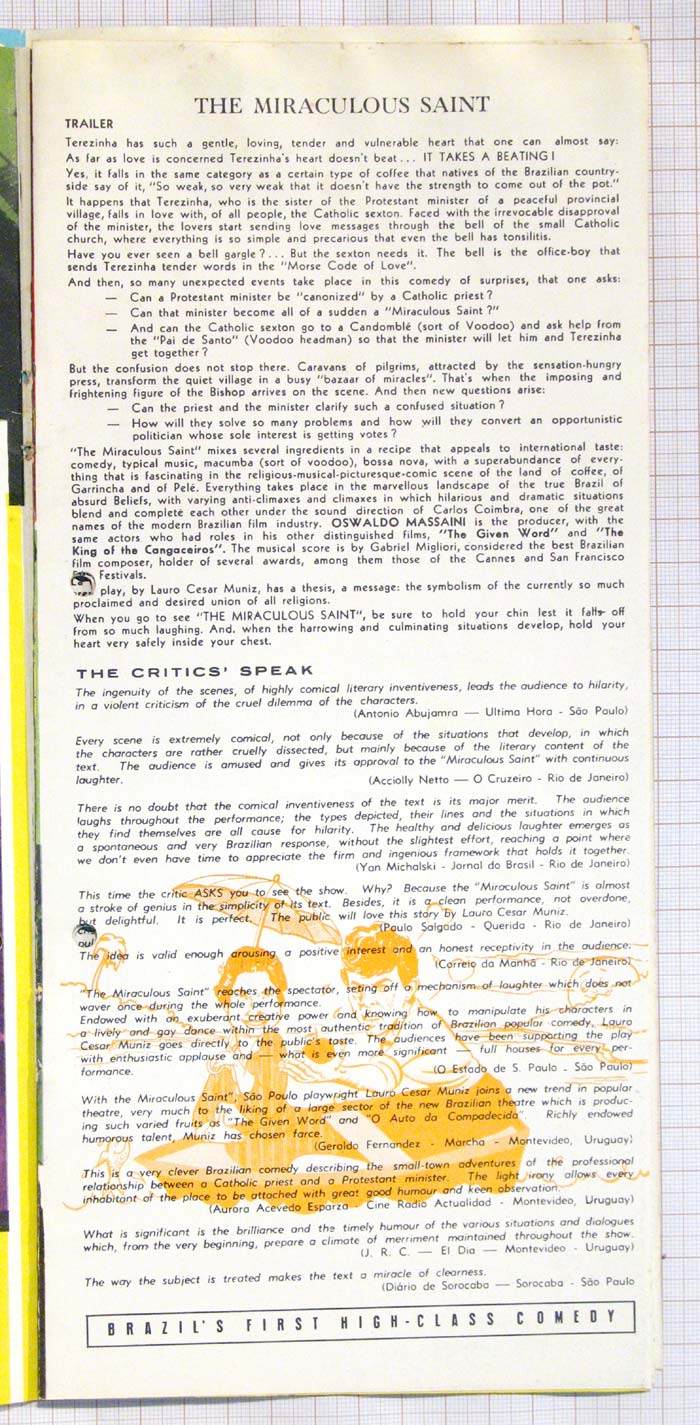 THE MIRACULOUS SAINT
TRAILER
Terezinha has such a gentle, loving, tender and vulnerable heart that one can almost say:
As far as love is concerned Terezinha's heart doesn't beat... IT TAKES A BEATING!
Yes, it falls in the same category as a certain type of coffee that natives of the Brazilian country-
side say of it, "So weak, so very weak that it doesn't have the strength to come out of the pot."
It happens that Terezinha, who is the sister of the Protestant minister of a peaceful provincial
village, falls in love with, of all people, the Catholic sexton. Faced with the irrevocable disapproval
of the minister, the lovers start sending love messages through the bell of the small Catholic
church, where everything is so simple and precarious that even the bell has tonsilitis.
Have you ever seen a bell gargle?... But the sexton needs it. The bell is the office-boy that
sends Terezinha tender words in the "Morse Code of Love".
And then, so many unexpected events take place in this comedy of surprises, that one asks:
— Can a Protestant minister be "canonized" by a Catholic priest?
— Can that minister become all of a sudden a "Miraculous Saint?"
— And can the Catholic sexton go to a Candomblé (sort of Voodoo) and ask help from
the "Pai de Santo" (Voodoo headman) so that the minister will let him and Terezinha
get together?
But the confusion does not stop there. Caravans of pilgrims, attracted by the sensation-hungry
press, transform the quiet village in a busy "bazaar of miracles". That's when the imposing and
frightening figure of the Bishop arrives on the scene. And then new questions arise:
— Can the priest and the minister clarify such a confused situation?
— How will they solve so many problems and how will they convert an opportunistic
politician whose sole interest is getting votes?
"The Miraculous Saint" mixes several ingredients in a recipe that appeals to international taste:
comedy, typical music, macumba (sort of voodoo), bossa nova, with a superabundance of every-
thing that is fascinating in the religious-musical-picturesque-comic scene of the land of coffee, of
Garrincha and of Pelé. Everything takes place in the marvellous landscape of the true Brazil of
absurd Beliefs, with varying anti-climaxes and climaxes in which hilarious and dramatic situations
blend and complete each other under the sound direction of Carlos Coimbra, one of the great
names of the modern Brazilian film industry. OSWALDO MASSAINI is the producer, with the
same actors who had roles in his other distinguished films, "The Given Word" and "The
King of the Cangaceiros". The musical score is by Gabriel Migliori, considered the best Brazilian
film composer, holder of several awards, among them those of the Cannes and San Francisco
Festivals.
play, by Lauro Cesar Muniz, has a thesis, a message: the symbolism of the currently so much
proclaimed and desired union of all religions.
When you go to see "THE MIRACULOUS SAINT", be sure to hold your chin lest it falls off
from so much laughing. And, when the harrowing and culminating situations develop, hold your
heart very safely inside your chest.
THE CRITICS' SPEAK
The ingenuity of the scenes, of highly comical literary inventiveness, leads the audience to hilarity,
in a violent criticism of the cruel dilemma of the characters.
(Antonio Abujamra — Ultima Hora - São Paulo)
Every scene is extremely comical, not only because of the situations that develop, in which
the characters are rather cruelly dissected, but mainly because of the literary content of the
text. The audience is amused and gives its approval to the "Miraculous Saint" with continuous
laughter. (Acciolly Netto — O Cruzeiro - Rio de Janeiro)
There is no doubt that the comical inventiveness of the text is its major merit. The audience
laughs throughout the performance; the types depicted, their lines and the situations in which
they find themselves are all cause for hilarity. The healthy and delicious laughter emerges as
a spontaneous and very Brazilian response, without the slightest effort, reaching a point where
we don't even have time to appreciate the firm and ingenious framework that holds it together.
(Yan Michalski - Jornal do Brasil - Rio de Janeiro)
This time the critic ASKS you to see the show. Why? Because the "Miraculous Saint" is almost
a stroke of genius in the simplicity of its text. Besides, it is a clean performance, not overdone,
but delightful. It is perfect. The public will love this story by Lauro Cesar Muniz.
(Paulo Salgado - Querida - Rio de Janeiro)
The idea is valid enough arousing a positive interest and an honest receptivity in the audience.
(Correio da Manhã - Rio de Janeiro)
"The Miraculous Saint" reaches the spectator, seting off a mechanism of laughter which does not
waver once during the whole performance.
Endowed with an exuberant creative power and knowing how to manipulate his characters in
a lively and gay dance within the most authentic tradition of Brazilian popular comedy, Lauro
Cesar Muniz goes directly to the public's taste. The audiences have been supporting the play
with enthusiastic applause and — what is even more significant — full houses for every per-
formance. (O Estado de S. Paulo - São Paulo)
With the Miraculous Saint", São Paulo playwright Lauro Cesar Muniz joins a new trend in popular
theatre, very much to the liking of a large sector of the new Brazilian theatre which is produc-
ing such varied fruits as "The Given Word" and "O Auto da Compadecida". Richly endowed
humorous talent, Muniz has chosen farce.
(Geraldo Fernandez - Marcha - Montevideo, Uruguay)
This is a very clever Brazilian comedy describing the small-town adventures of the professional
relationship between a Catholic priest and a Protestant minister. The light irony allows every
inhabitant of the place to be attached with great good humour and keen observation.
(Aurora Acevedo Esparza - Cine Radio Actualidad - Montevideo, Uruguay)
What is significant is the brilliance and the timely humour of the various situations and dialogues
which, from the very beginning, prepare a climate of merriment maintained throughout the show.
(J. R. C. — El Dia — Montevideo - Uruguay)
The way the subject is treated makes the text a miracle of clearness.
(Diário de Sorocaba — Sorocaba - São Paulo
BRAZIL'S FIRST HIGH-CLASS COMEDY